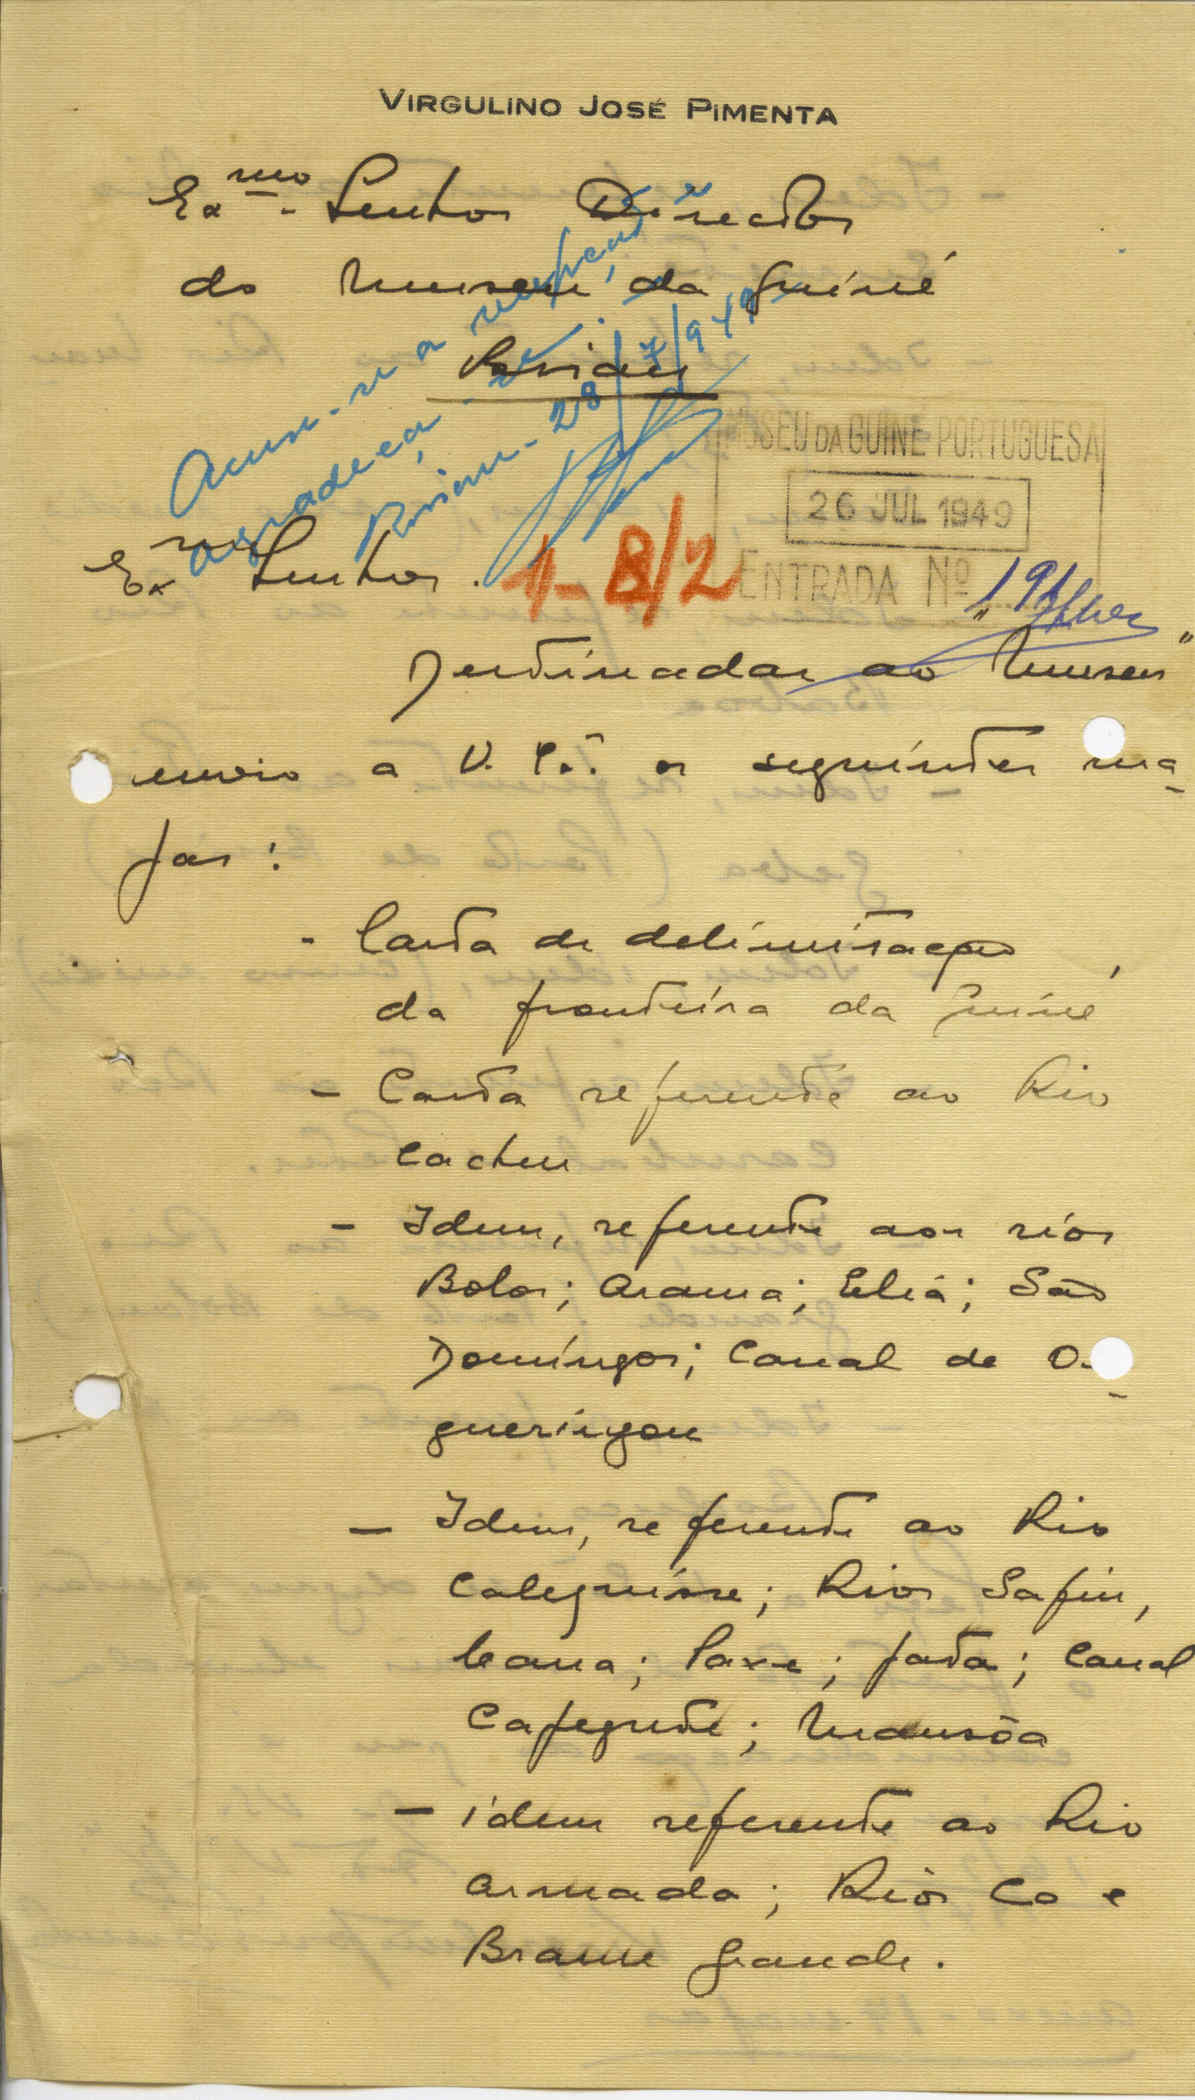 VIRGULINO JOSÉ PIMENTA
Exmo. Senhor Director
do Museu da Guiné
Bissau
Acuse-se a recepção e
agradeça-se.
Bissau-28/7/949
MUSEU DA GUINÉ PORTUGUESA
26 JUL 1949
ENTRADA Nº
Exmo Senhor.
1-8/2
Destinadas ao "Museu"
envio a V. Exª. os seguintes ma-
pas:
- Carta de delimitação
da fronteira da Guiné
- Carta referente ao Rio
Cacheu
- Idem, referente aos rios
Bolor; Arama; Eliá; São
Domingos; Canal de
gueringou
- Idem, referente ao Rio
Calequisse; Rios Safim,
Caana; Paxe; Jata; Canal
Capegute; Mansôa
- idem referente ao Rio
Armada; Rios Co e
Brame Grande.